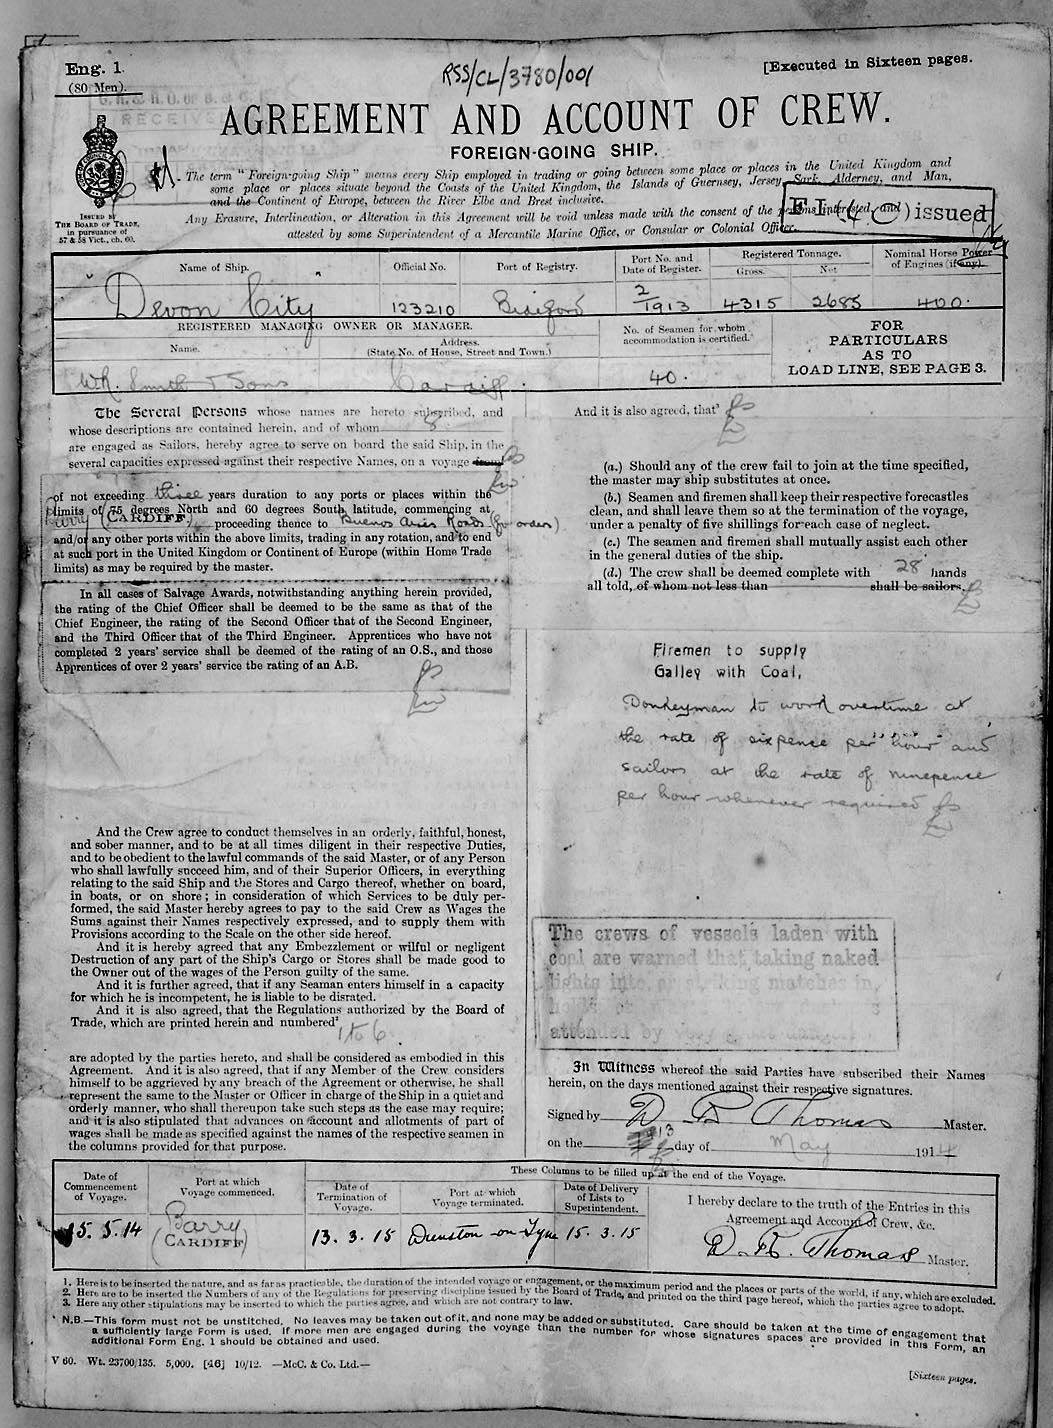 Eng. 1.
(80 Men).
RSS/CL/3780/001
[Executed in Sixteen pages.
RECEIVED
AGREEMENT AND ACCOUNT OF CREW.
FOREIGN-GOING SHIP.
ISSUED BY
THE BOARD OF TRADE,
in pursuance of
57 & 58 Vict., ch. 60.
The term "Foreign-going Ship" means every Ship employed in trading or going between some place or places in the United Kingdom and
some place or places situate beyond the Coasts of the United Kingdom, the Islands of Guernsey, Jersey, Sark, Alderney, and Man,
and the Continent of Europe, between the River Elbe and Brest inclusive.
Any Erasure, Interlineation, or Alteration in this Agreement will be void unless made with the consent of the persons interested, and
attested by some Superintendent of a Mercantile Marine Office, or Consular or Colonial Officer.
issued
Name of Ship.
Official No.
Port of Registry.
Port No. and
Date of Register.
Registered Tonnage.
Gross.
Net
Nominal Horse Power
of Engines (if any).
"Devon City"
123210
Bideford
2/1913
4315
2685
400.
REGISTERED MANAGING OWNER OR MANAGER.
Name.
Address.
(State No. of House, Street and Town.)
No. of Seamen for whom
accommodation is certified.
FOR
PARTICULARS
AS TO
LOAD LINE, SEE PAGE 3.
W.R. Smith & Sons
Cardiff.
40.
The Several Persons whose names are hereto subscribed, and
whose descriptions are contained herein, and of whom 8
are engaged as Sailors, hereby agree to serve on board the said Ship, in the
several capacities expressed against their respective Names, on a voyage from
of not exceeding three years duration to any ports or places within the
limits of 75 degrees North and 60 degrees South latitude, commencing at
Barry (CARDIFF), proceeding thence to Buenos Aires Roads (for orders)
and/or any other ports within the above limits, trading in any rotation, and to end
at such port in the United Kingdom or Continent of Europe (within Home Trade
limits) as may be required by the master.
In all cases of Salvage Awards, notwithstanding anything herein provided,
the rating of the Chief Officer shall be deemed to be the same as that of the
Chief Engineer, the rating of the Second Officer that of the Second Engineer,
and the Third Officer that of the Third Engineer. Apprentices who have not
completed 2 years' service shall be deemed of the rating of an O.S., and those
Apprentices of over 2 years' service the rating of an A.B.
And the Crew agree to conduct themselves in an orderly, faithful, honest,
and sober manner, and to be at all times diligent in their respective Duties,
and to be obedient to the lawful commands of the said Master, or of any Person
who shall lawfully succeed him, and of their Superior Officers, in everything
relating to the said Ship and the Stores and Cargo thereof, whether on board,
in boats, or on shore; in consideration of which Services to be duly per-
formed, the said Master hereby agrees to pay to the said Crew as Wages the
Sums against their Names respectively expressed, and to supply them with
Provisions according to the Scale on the other side hereof.
And it is hereby agreed that any Embezzlement or wilful or negligent
Destruction of any part of the Ship's Cargo or Stores shall be made good to
the Owner out of the wages of the Person guilty of the same.
And it is further agreed, that if any Seaman enters himself in a capacity
for which he is incompetent, he is liable to be disrated.
And it is also agreed, that the Regulations authorized by the Board of
Trade, which are printed herein and numbered²
1 to 6.
are adopted by the parties hereto, and shall be considered as embodied in this
Agreement. And it is also agreed, that if any Member of the Crew considers
himself to be aggrieved by any breach of the Agreement or otherwise, he shall
represent the same to the Master or Officer in charge of the Ship in a quiet and
orderly manner, who shall thereupon take such steps as the case may require;
and it is also stipulated that advances on account and allotments of part of
wages shall be made as specified against the names of the respective seamen in
the columns provided for that purpose.
And it is also agreed, that³
(a.) Should any of the crew fail to join at the time specified,
the master may ship substitutes at once.
(b.) Seamen and firemen shall keep their respective forecastles
clean, and shall leave them so at the termination of the voyage,
under a penalty of five shillings for each case of neglect.
(c.) The seamen and firemen shall mutually assist each other
in the general duties of the ship.
(d.) The crew shall be deemed complete with 28 hands
all told, of whom not less than shall be sailors.
Firemen to supply
Galley with Coal,
Donkeyman to work overtime at
the rate of sixpence per hour and
sailors at the rate of ninepence
per hour whenever required
The crews of vessels laden with
coal are warned that taking naked
lights into, or striking matches in,
attended by very great danger.
In Witness whereof the said Parties have subscribed their Names
herein, on the days mentioned against their respective signatures.
Signed by D R Thomas Master.
on the 13 day of May 1914
Date of
Commencement
of Voyage.
Port at which
Voyage commenced.
These Columns to be filled up at the end of the Voyage.
Date of
Termination of
Voyage.
Port at which
Voyage terminated.
Date of Delivery
of Lists to
Superintendent.
I hereby declare to the truth of the Entries in this
Agreement and Account of Crew, &c.
15.5.14
Barry
(CARDIFF)
13.3.15
Dunston-on-Tyne
15.3.15
D. R. Thomas Master.
1. Here is to be inserted the nature, and as far as practicable, the duration of the intended voyage or engagement, or the maximum period and the places or parts of the world, if any, which are excluded.
2. Here are to be inserted the Numbers of any of the Regulations for preserving discipline issued by the Board of Trade, and printed on the third page hereof, which the parties agree to adopt.
3. Here any other stipulations may be inserted to which the parties agree, and which are not contrary to law.
N.B.—This form must not be unstitched. No leaves may be taken out of it, and none may be added or substituted. Care should be taken at the time of engagement that
a sufficiently large Form is used. If more men are engaged during the voyage than the number for whose signatures spaces are provided in this Form, an
additional Form Eng. 1 should be obtained and used.
V 60. Wt. 23700/135. 5,000. [46] 10/12. —McC. & Co. Ltd.—
[Sixteen pages.